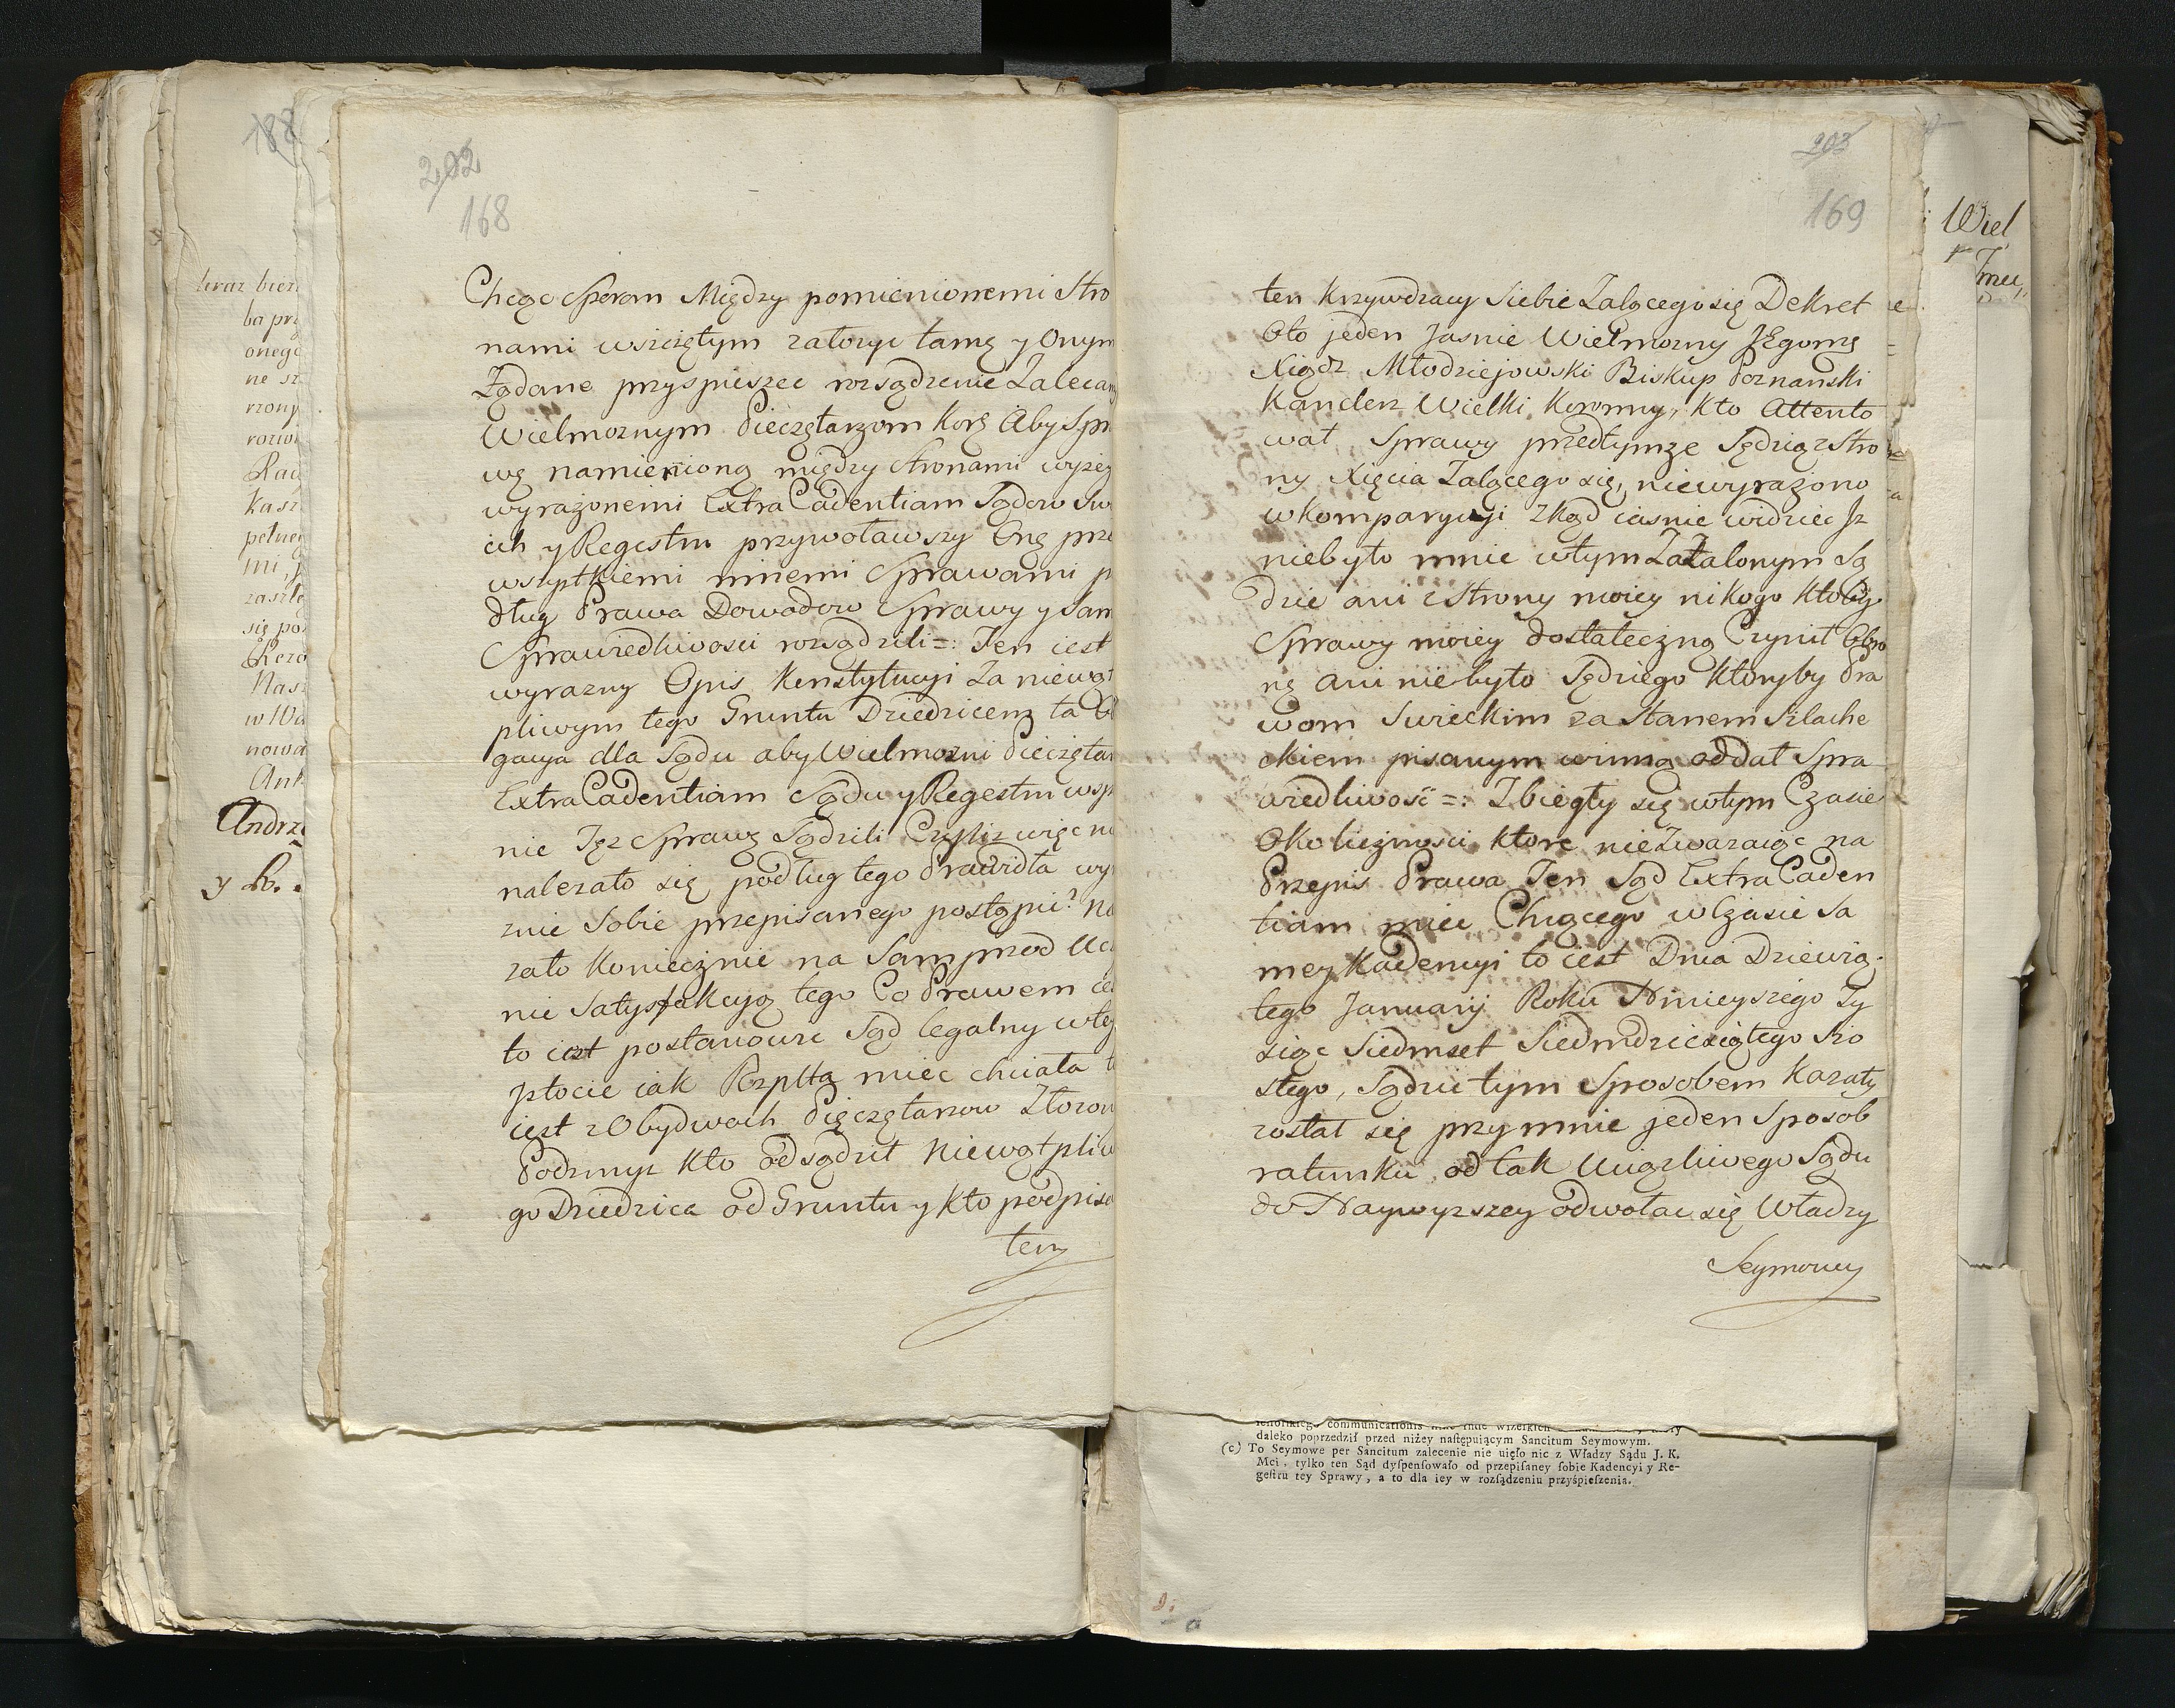 188
202
168
Chcąc Sporom Między pomienionemi Stro
nami wszczętym założyć tamę y Onym
Żądane przyspieszec rozsądzenie Zalecam
Wielmoznym Pieczętarzom Korñ Aby Spr
wę namienioną między stronami wyżey
wyrażonemi Extra Cadentiam Sądow Sw
ich y Regestru przywoławszy Onę prz
wszystkiemi innemi Sprawami p
dług Prawa Dowodow Sprawy y Sam
Sprawiedliwosci rozsądzili =: Ten iest
wyrazny Opis Konstytucyi Za niewąt
pliwym tego Gruntu Dziedzicem ta Ob
gacya dla Sądu aby Wielmozni Pieczętar
Extra Cadentiam Sądu y Regestru wsp
nie Tęz Sprawę Sądzili Czyliz więc n
nalezało się podług tego Prawidła wy
znie Sobie przepisanego postąpić? N
zało Koniecznie na Samprzod Uc
nie Satysfakcyą tego Co Prawem ie
to iest postanowic Sąd legalny w tey
Jstocie iak Rzplta miec chciała t
iest z Obydwoch Pięczętarzow Złozon
Podzmyz Kto odsądził Niewątpliw
go Dziedzica od Gruntu y Kto podpisa
ten
203
169
ten Krzywdzący Siebie Zalącego się Dekret
Oto jeden Jasnie Wielmozny JEgomę
Xiądz Młodziejowski Biskup Poznanski
Kanclerz Wielki Koronny, Kto Attento
wał Sprawy przedtymze Sędzią z Stro
ny Xięcia Zalącego się, niewyrazono
w komparycyi Zkąd iasnie widziec Jz
niebyło mnie w tym Zażalonym Są
dzie ani z Strony moiey nikogo Ktoby
Sprawy moiey dostateczną Czynił Obro
nę ani nie było Sędziego Ktoryby Pra
wom Swieckim za Stanem Szlache
ckiem pisanym winną oddał Spra
wiedliwość =: Zbiegły się w tym Czasie
Okoliczności ktore nie Zwazaiąc na
Przepis Prawa Ten Sąd Extra Caden
tiam miec Chcącego w Czasie Sa
mey Kadencyi to iest Dnia Dziewią-
tego Januarij Roku Ninieyszego Ty
siąc Siedmset Siedmdziesiątego Szo
stego, Sądzic tym Sposobem Kazały
został się przy mnie jeden Sposob
ratunku od tak Uciązliwego Sądu
do Naywyzszey odwołac się Władzy
Seymowey
Wiel
daleko poprzedził przed niżey następuiącym Sancitum Seymowym.
(c) To Seymowe per Sancitum zalecenie nie uięło nic z Władzy Sądu J. K.
Mci, tylko ten Sąd dyspensowało od przepisaney sobie Kadencyi y Re-
gestru tey Sprawy, a to dla iey w rozsądzeniu przyśpieszenia.